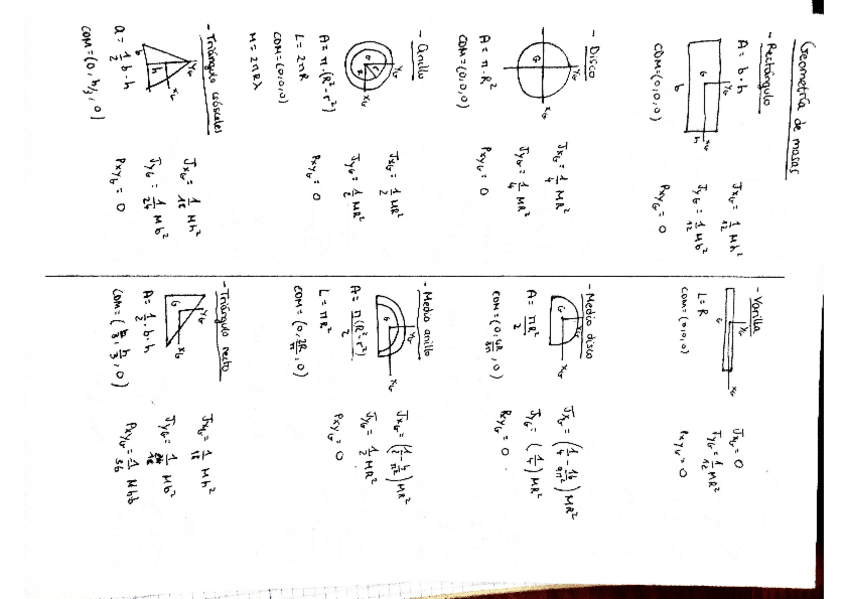 Geometría de masas
- Rectángulo
A = b·h
b
h
G
COM=(0,0,0)
Jx_G = 1/12 Mh²
Jy_G = 1/12 Mb²
Pxy_G = 0
- Disco
G
A = π·R²
COM=(0,0,0)
Jx_G = 1/4 MR²
Jy_G = 1/4 MR²
Pxy_G = 0
- Anillo
A = π·(R²-r²)
L = 2πR
COM=(0,0,0)
M = 2πRλ
Jx_G = 1/2 MR²
Jy_G = 1/2 MR²
Pxy_G = 0
- Triángulo isósceles
b
h
a = 1/2 b·h
COM=(0, h/3, 0)
Jx_G = 1/18 Mh²
Jy_G = 1/24 Mb²
Pxy_G = 0
- Varilla
G
L = R
COM=(0,0,0)
Jx_G = 0
Jy_G = 1/12 MR²
Pxy_G = 0
- Medio disco
G
A = πR²/2
COM=(0, 4R/3π, 0)
Jx_G = (1/4 - 16/9π²) MR²
Jy_G = (1/4) MR²
Pxy_G = 0
- Medio anillo
G
A = π(R²-r²)/2
L = πR
COM=(0, 2R/π, 0)
Jx_G = (1/2 - 4/π²) MR²
Jy_G = 1/2 MR²
Pxy_G = 0
- Triángulo recto
G
A = 1/2·b·h
COM=(b/3, h/3, 0)
Jx_G = 1/18 Mh²
Jy_G = 1/18 Mb²
Pxy_G = 1/36 Mhb